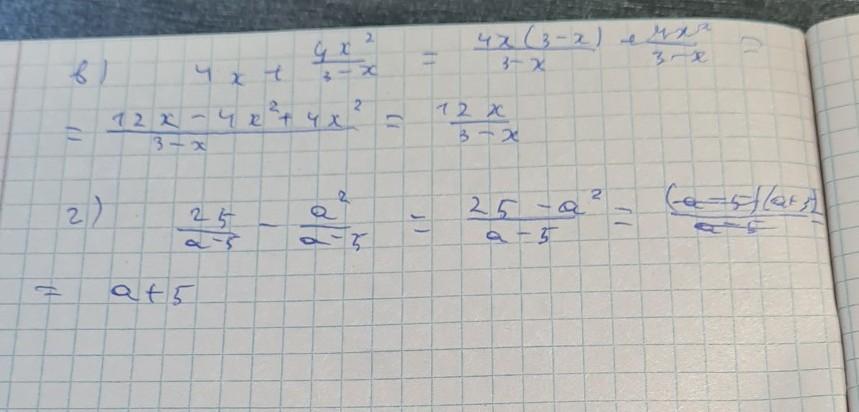 в) 4x + 4x²/3-x = 4x(3-x)/3-x + 4x²/3-x =
= 12x - 4x² + 4x²/3-x = 12x/3-x
г) 25/a-5 - a²/a-5 = 25-a²/a-5 = (-a-5)(a+5)/a-5 =
= a+5